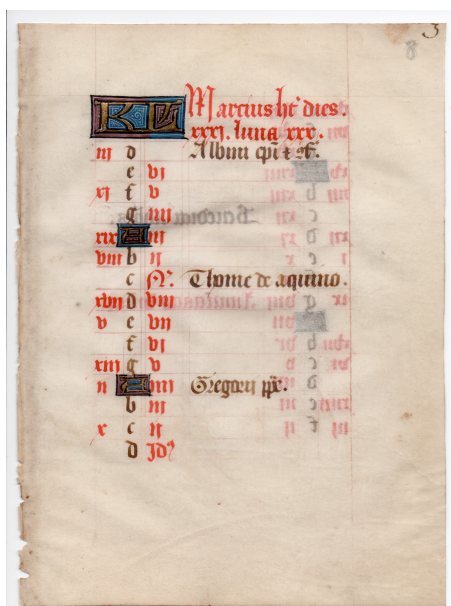 3
8
KL Marcius ht dies.
xxxj. luna xxx.
iij d Albini epi et cf.
e vj
xj f v
g iiij
xix A iij
viij b ij
c N. Thome de aquino.
xvij d viij
v e vij
f vj
xiij g v
ij A iiij Gregorij pp.
b iij
x c ij
d Jd